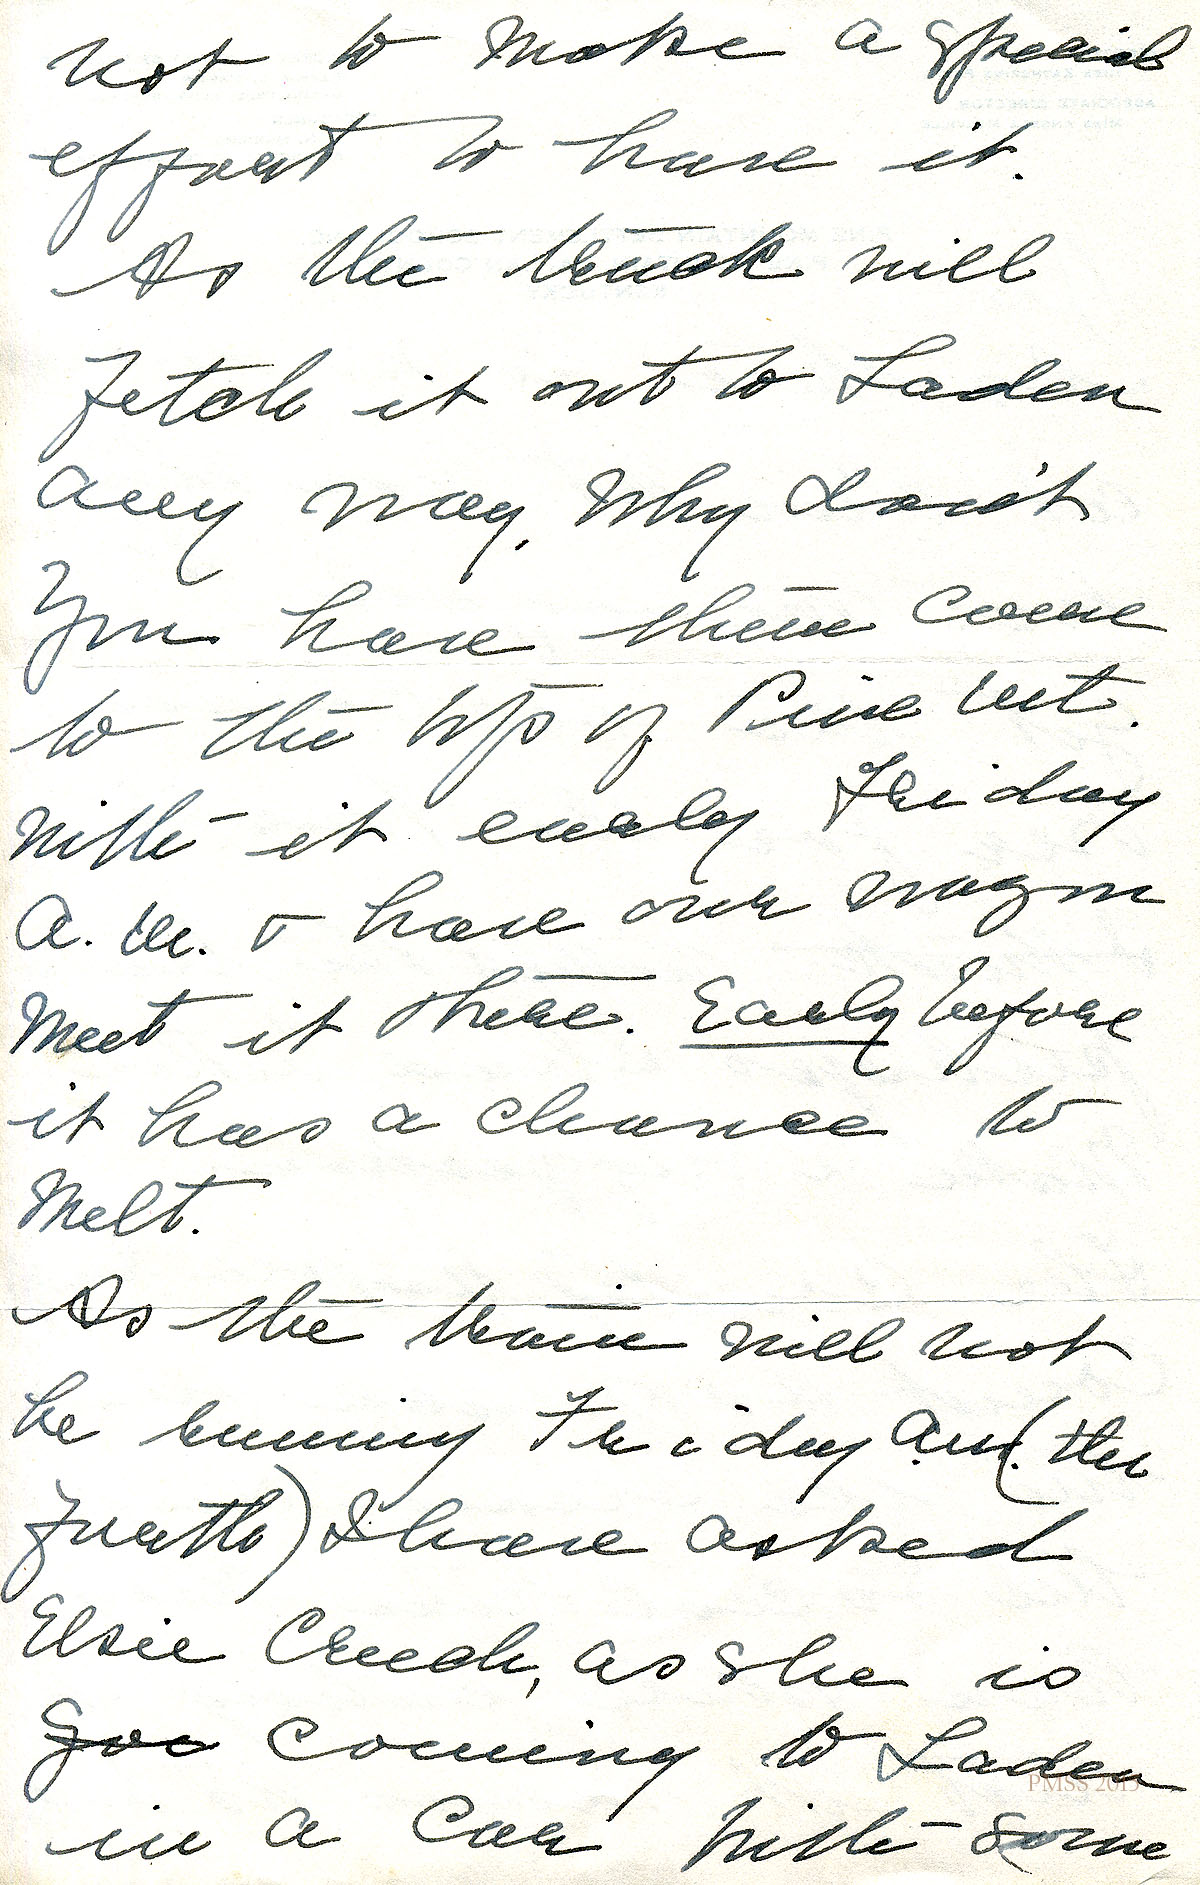 not to make a special
effort to have it.
As the truck will
fetch it out to Laden
any way, Why don't
You have them come
to the top of Pine Mt.
with it early Friday
A.M. & have our wagon
Meet it there. Early before
it has a chance to
Melt.
As the train will not
be running Friday a.m. (the
fourth) I have asked
Elsie Creech, as she is
goi coming to Laden
in a car with some
PMSS 2015